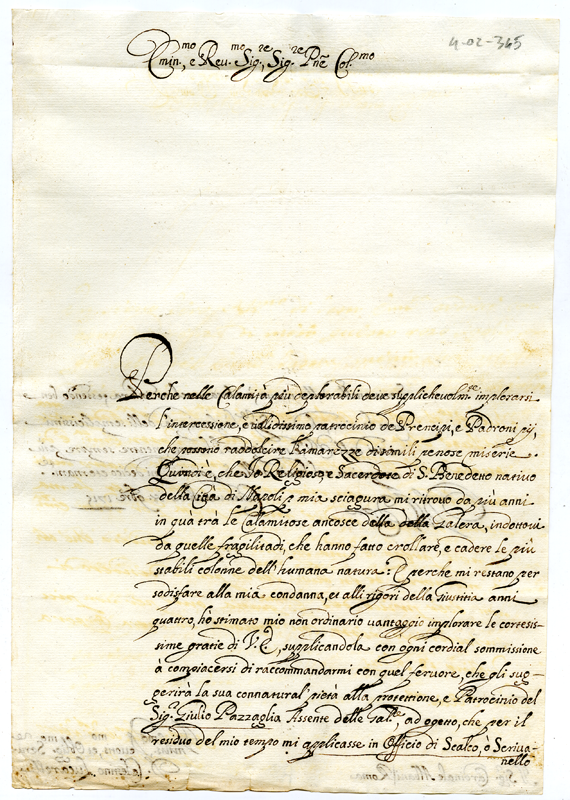 4-02-365
Emin.mo, e Reu.mo Sig.re, Sig.re Pñe Col.mo
Perche nelle Calamità più deplorabili deue supplicheuolm.te implorarsi
l'intercessione, e ualidissimo patrocinio de Prencipi, e Padroni pij,
che possono raddolcire l'amarezze di simili penose miserie.
Quindi è, che Io Religioso, e Sacerdote di S. Benedetto natiuo
della Città di Napoli p mia sciagura mi ritrouo da più anni
in qua trà le Calamitose angosce della della Galera, indottoui
da quelle fragilitadi, che hanno fatto crollare, e cadere le più
stabili colonne dell'humana natura: E perche mi restano per
sodisfare alla mia condanna, et alli rigori della Giustitia anni
quattro, hò stimato mio non ordinario uantaggio implorare le cortesis-
sime gratie di V. E., supplicandola con ogni cordial sommissione
à compiacersi di raccommandarmi con quel feruore, che gli sug-
gerirà la sua connatural pietà alla protettione, e Patrocinio del
Sig.r Giulio Pazzaglia Assente delle Gal.re, ad effetto, che per il
residuo del mio tempo mi applicasse in Officio di Scalco, o Scriua-
nello